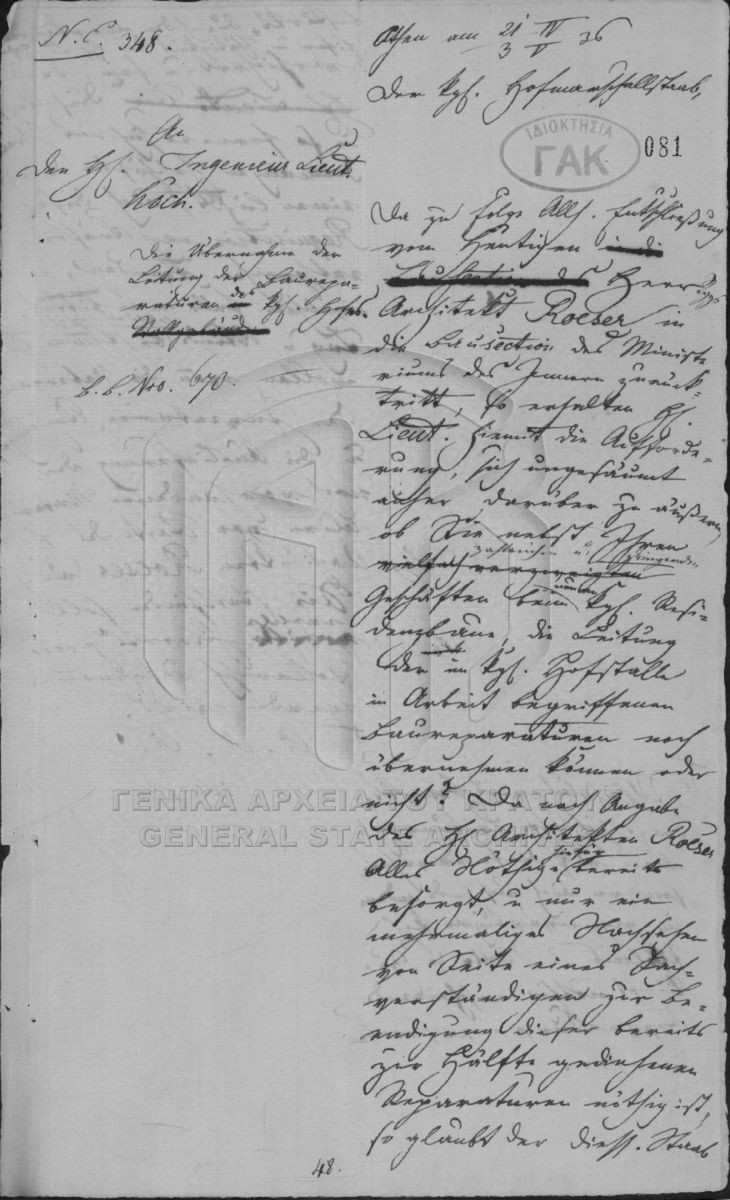 N. E. 348.
An
Den H. Ingenieur Lieut.
Hoch.
Die Übernahme der
Leitung der Baurepa-
raturen des kgl. Hofes.
Stallgebäude
E. E. Nro. 670.
Athen am 21 IV 36
3 V
Der kgl. Hofmarschallstaab,
ΙΔΙΟΚΤΗΣΙΑ
ΓΑΚ
081
Da zu Folge Allh. Entschließung
vom Heutigen in die
Bausection des Herr
Architekt Roeser in
die Bausection des Ministe
riums des Innern zurück-
tritt, so erhalten H.
Lieut. hiemit die Aufforde-
rung, sich ungesäumt
anher darüber zu äußern,
ob Sie nebst Ihren
zahlreichen u. dringenden
vielfach verzweigten
Geschäften beim kgl. Resi-
denzbaue, die Leitung
der im kgl. Hofstalle
in Arbeit begriffenen
Baureparaturen noch
übernehmen können oder
nicht? Da nach Angabe
des H. Architekten Roeser
Alles Nöthige hiefür bereits
besorgt, u nur ein
mehrmaliges Nachsehen
von Seite eines Sach-
verständigen zur Be-
endigung dieser bereits
zur Hälfte gediehenen
Reparaturen nöthig ist,
so glaubt der diess. Staab
48.
ΓΕΝΙΚΑ ΑΡΧΕΙΑ ΤΟΥ ΚΡΑΤΟΥΣ
GENERAL STATE ARCHIVES